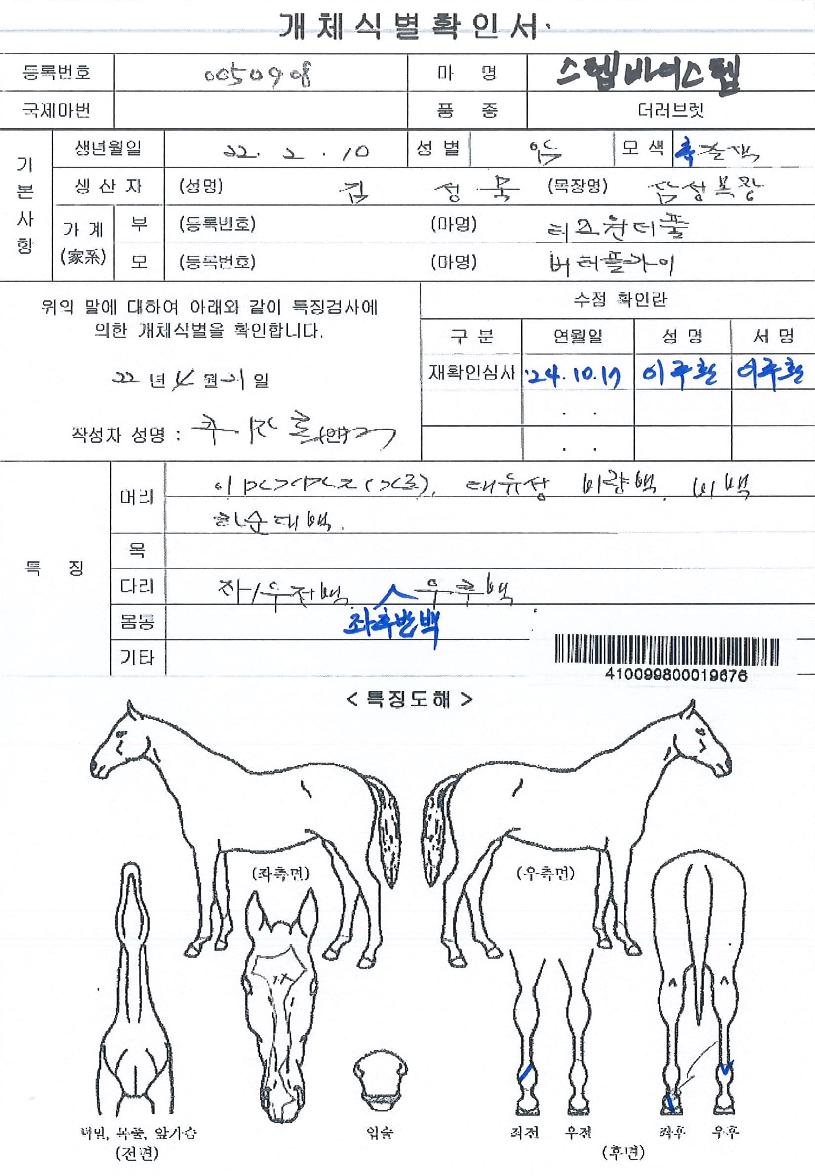 개체식별확인서
등록번호 0050908 마 명 스텝바이스텝
국제마번 품 종 더러브렛
기본사항 생년월일 22. 2. 10 성별 암 모색 흑갈색
생산자 (성명) 김 성 목 (목장명)
가계 (家系) 부 (등록번호) (마명) 티즈원더풀
모 (등록번호) (마명) 버터플라이
위의 말에 대하여 아래와 같이 특징검사에
의한 개체식별을 확인합니다.
22 년 4 월 21 일
작성자 성명 : (인)
수정 확인란
구 분 연월일 성 명 서 명
재확인심사 '24.10.17 이주환 이주환
. .
. .
특 징
머리 대유성 비량백, 비백
하순대백.
목
다리 좌/우전백 우후백
좌후반백
몸통
기타
410099800019676
< 특징도해 >
(좌측면) (우측면)
턱밑, 목풀, 앞가슴 입술 좌전 우전 좌후 우후
(전면) (후면)